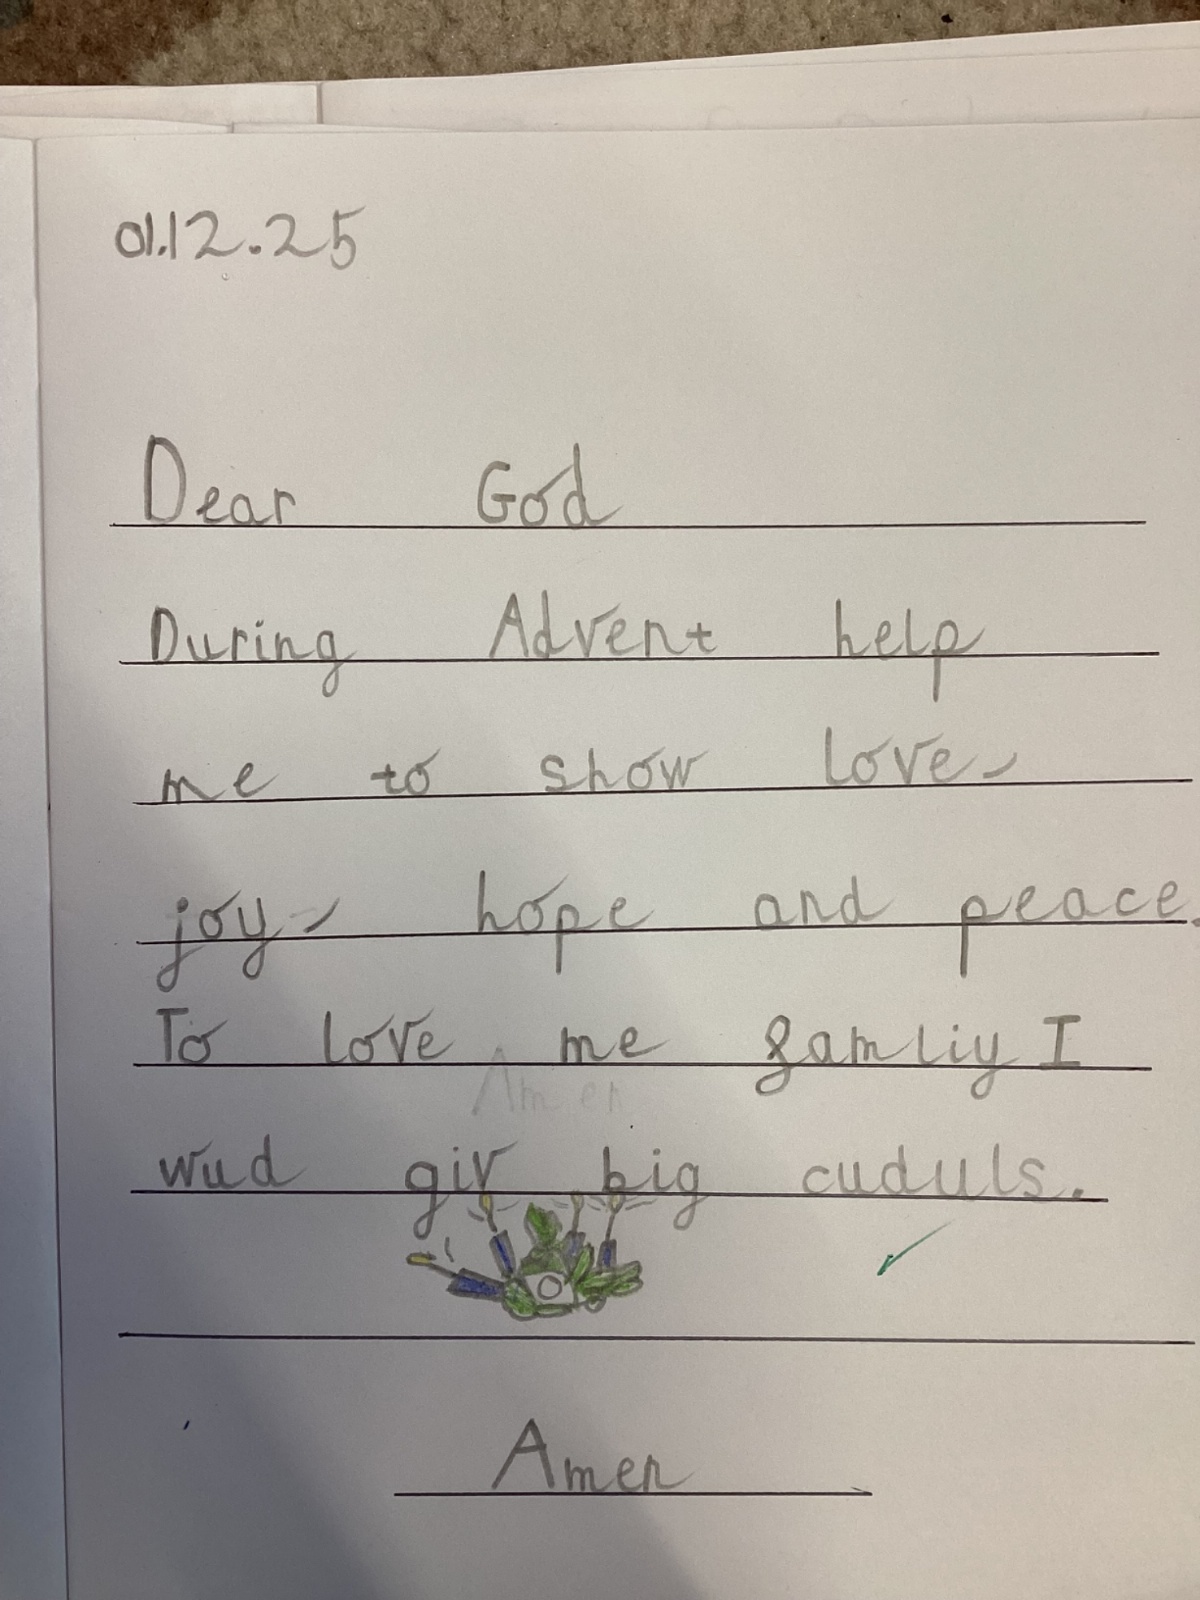 01.12.25
Dear God
During Advent help
me to show love,
joy, hope and peace.
To love me famliy I
Amen
wud giv big cuduls.
Amen